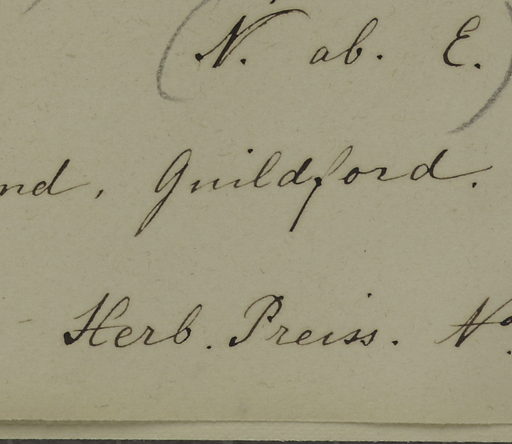 (N. ab. E.)
nd, Guildford.
Herb. Preiss. No